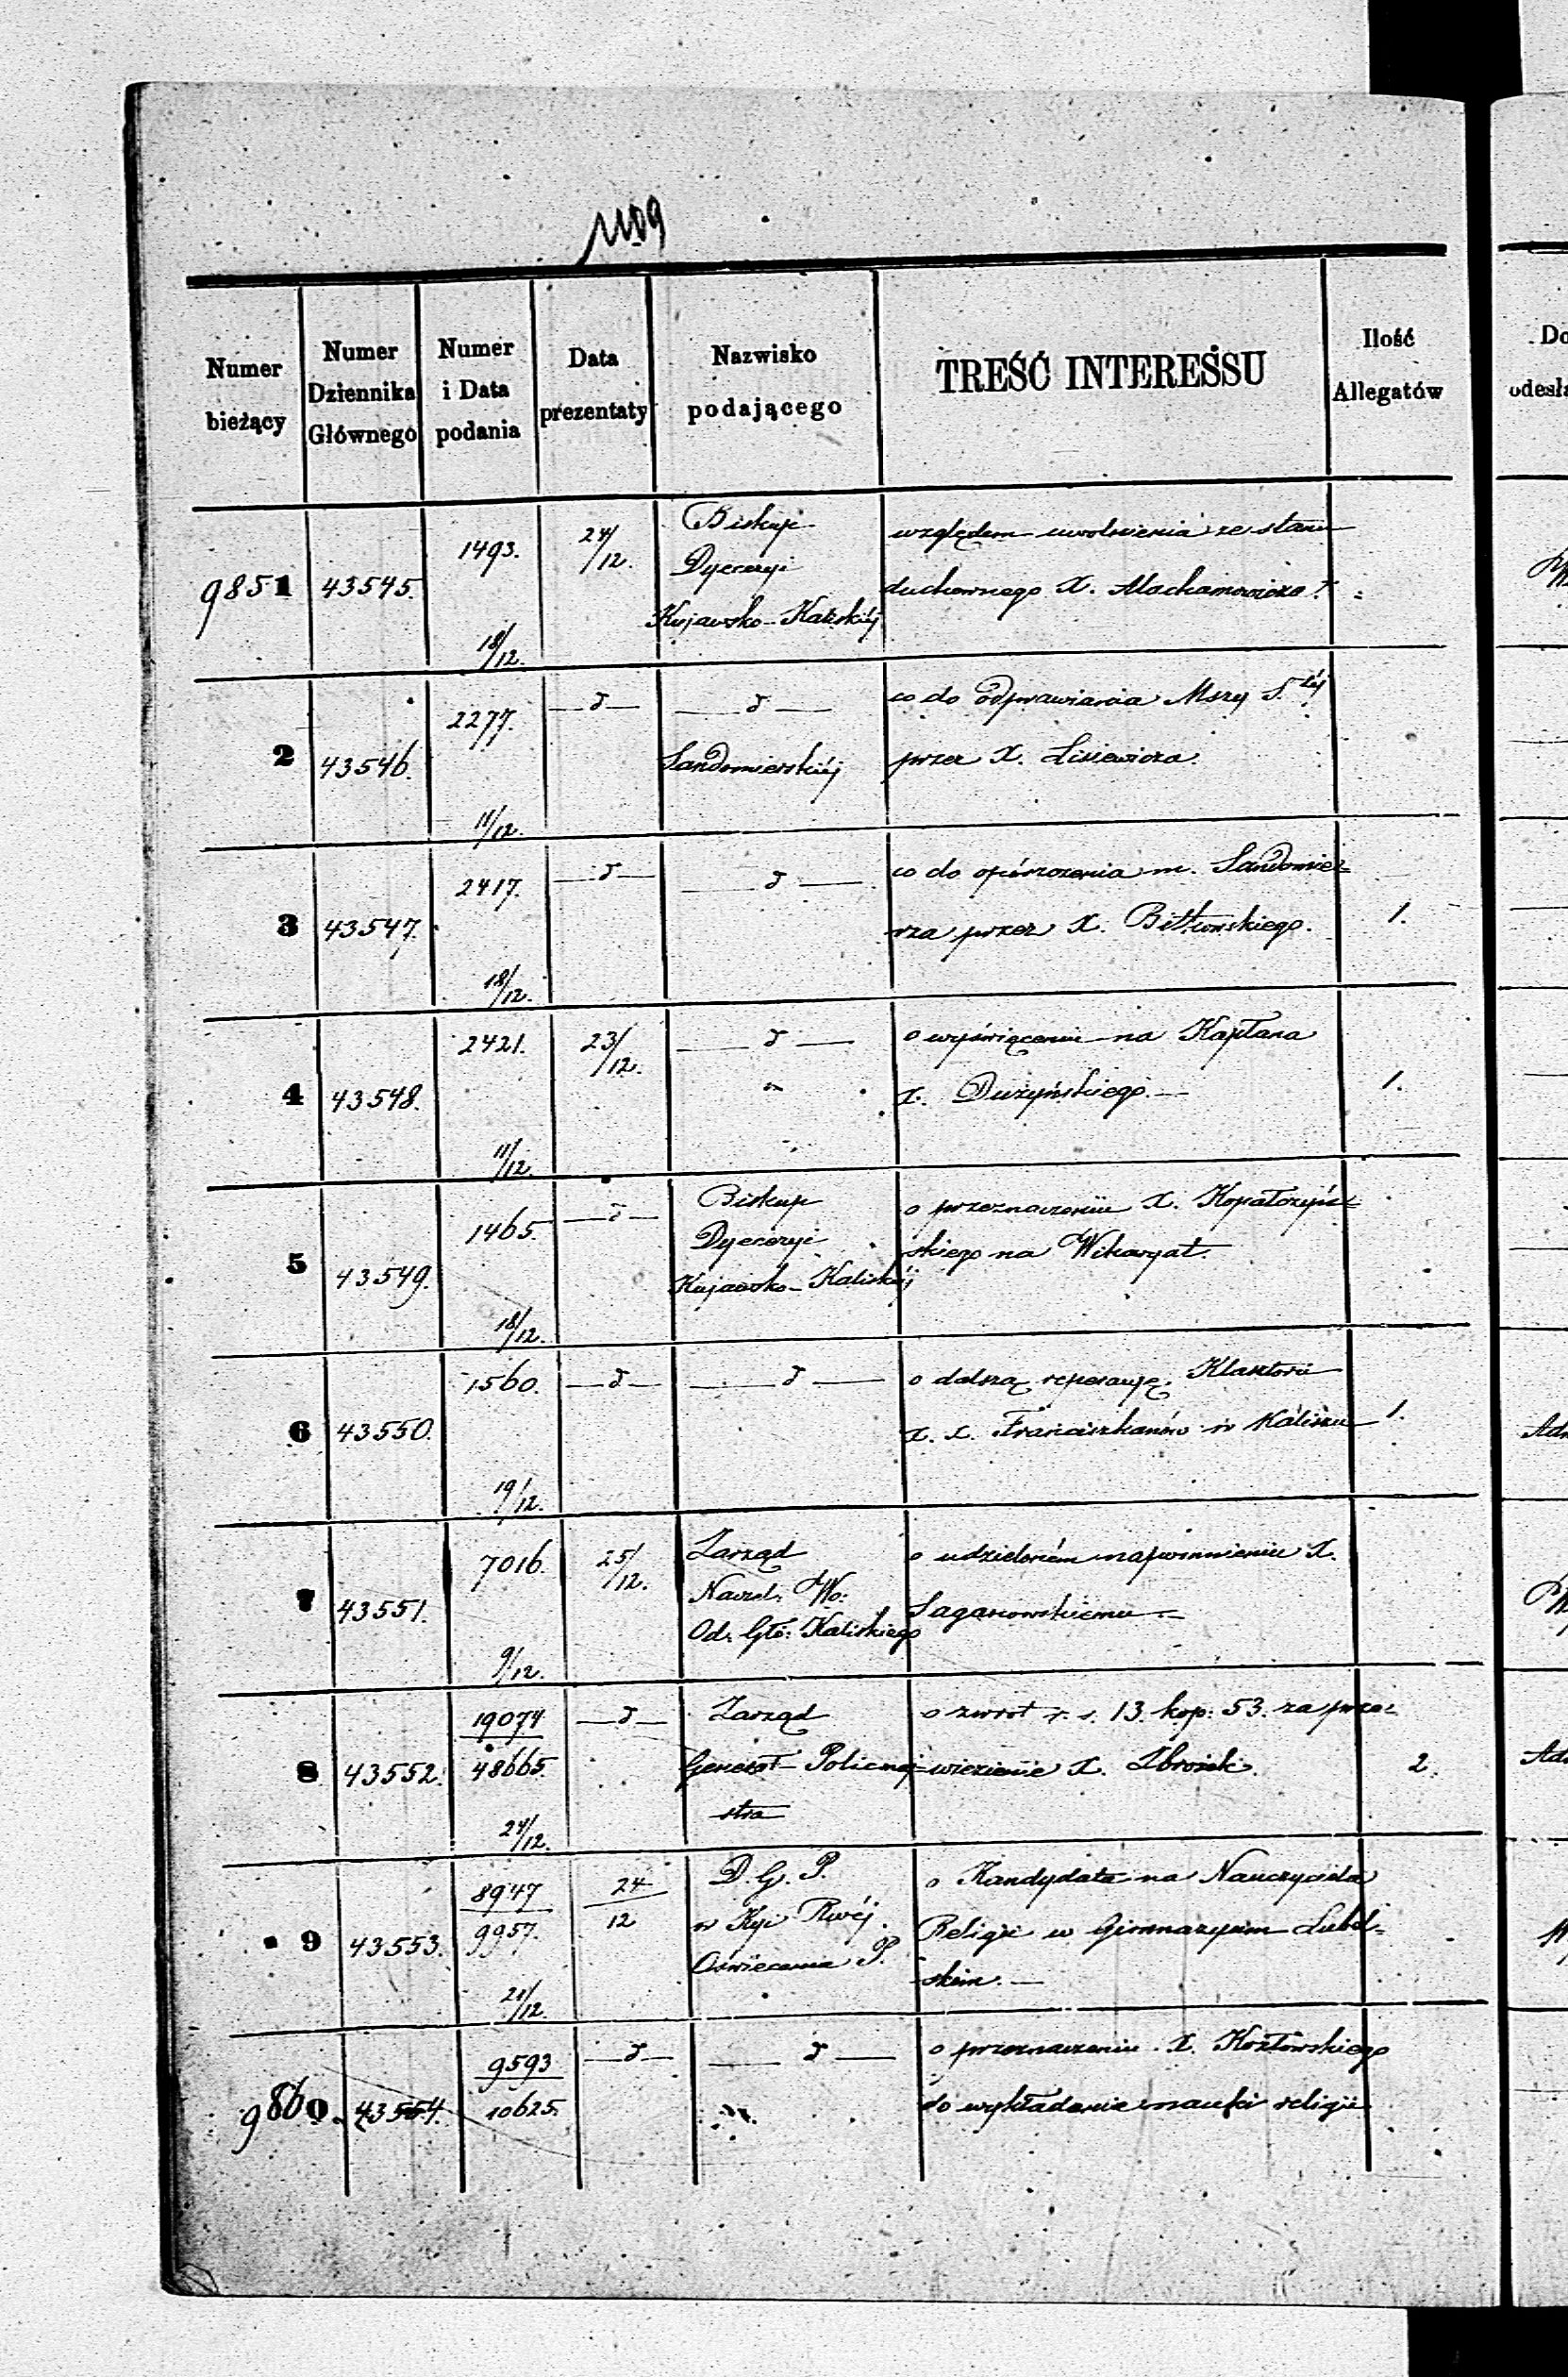 1109
Numer bieżący
Numer Dziennika Głównego
Numer i Data podania
Data prezentaty
Nazwisko podającego
TREŚĆ INTERESSU
Ilość Allegatów
9851 43545. 1493. 18/12. 24/12.
Biskup
Dyecezyi
Kujawsko-Kaliskiéj
względem uwolnienia ze stanu
duchownego X.
2 43546. 2277. 11/12. d d
Sandomierskiéj
co do odprawiania Mszy S.téj
przez X. Lisiewicza.
3 43547. 2417. 18/12. d d
co do opuszczenia m. Sandomie=
rza przez X. 1.
4 43548. 2421. 11/12. 23/12. d
o wyświęceniu na Kapłana
X. Dużyńskiego. 1.
5 43549. 1465. 18/12. d
Biskup
Dyecezyi
Kujawsko-Kaliskiéj
o przeznaczeniu X. Kopalczyń=
skiego na Wikaryat.
6 43550. 1560. 19/12. d d
o dalszą reperacyę Klasztoru
X. X. Franciszkanów w Kaliszu 1.
7 43551. 7016. 9/12. 25/12.
Zarząd
Nacz. Wo:
Od. Głó: Kaliskiego
o udzieleniem napomnieniu X.
Saganowskiemu
8 43552. 19074 48665. 24/12. d
Zarząd
Generał-Policmaj=
stra
o zwrot r. s. 13. kop: 53. za prze=
wiezienie X. Zbrożek. 2.
9 43553. 8947 9957. 21/12. 24/12
D. G. P.
w Kyi Rwéj
Oświecenia P.
o Kandydata na Nauczyciela
Religii w Gimnazyum Lubel=
skim.
9860. 43554. 9593 10625. d d
o przeznaczeniu X. Kozłowskiego
do wykładania nauki religii